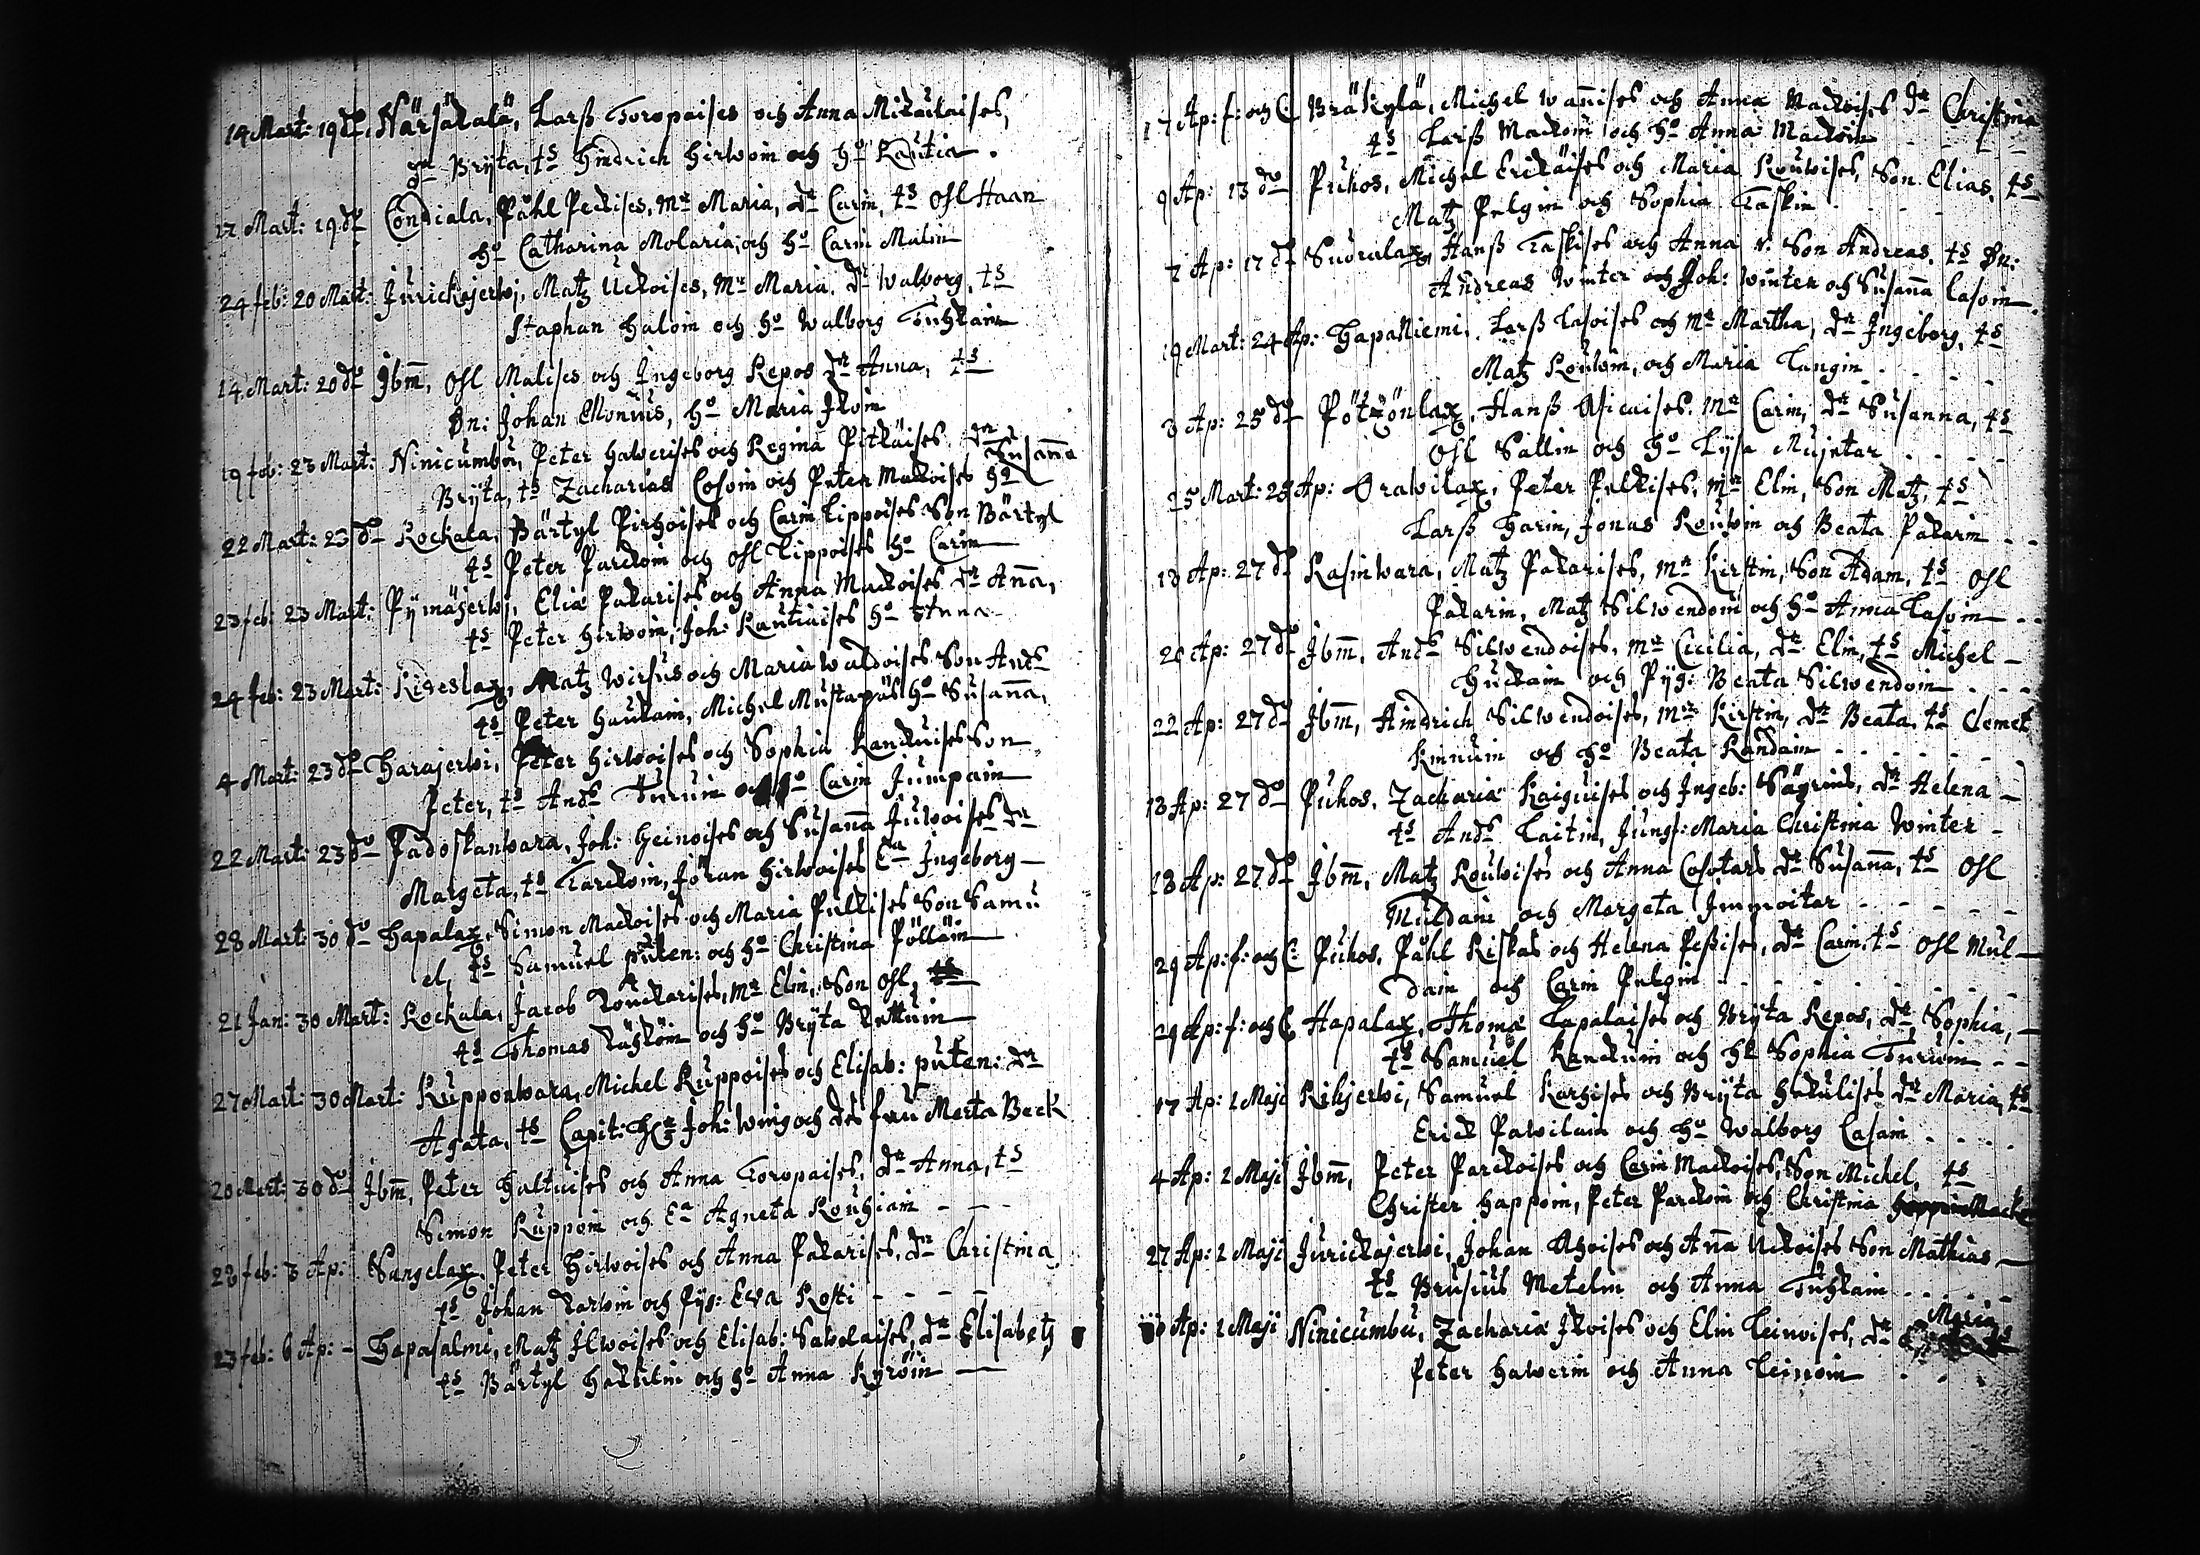 14 Mart: 19 do. Närsäkalä, Larß Toropoises och Anna Mikäiläises,
dr Brÿta, ts Hindrich Hirwoin och ho Kautia.
17 Mart: 19 do Condiala, Påhl Peckises, mr Maria, dr Carin, ts Osl Haan
ho Catharina Molaria, och ho Carin Mulin
24 feb: 20 Mart: Jurickajerwj, Matz Uckoises, Mr Maria, dr Walborg, ts
Staphan Haloin och ho Walborg Tuhkain
14 Mart: 20 do Jbm, Osl Malises och Ingeborg Repos dr Anna, ts
Dn: Johan Monnus, ho Maria Ikoin
19 feb: 23 Mart: Ninicumbu, Peter Hawerises och Regina Pitkäises. dr
Brÿta, ts Zacharias Cosoin och Peter Mackoises ho Susanna
22 Mart: 23 do Kockala, Bärtyl Pirhoises och Carin Lippoises Son Bärtyl
ts Peter Parckoin och Osl Lippoises ho Carin
23 feb: 23 Mart: Pÿmäjerwj, Elia Pakarises och Anna Mackoises dr Anna,
ts Peter Hirwoin, Joh: Kautiaises ho Anna
24 feb: 23 Mart: Kideslax, Matz Wirsus och Maria Waldoises Son Ands
ts Peter Haukain, Michel Mustapäs ho Susanna,
4 Mart: 23 do Harajerwi, Peter Hirwoises och Sophia Kanckuises Son
Peter, ts Ands Turuin och ho Carin Jumpain
22 Mart: 23 do Padoskanwara, Joh: Heinoises och Susanna Juwoises dr
Margeta, ts Tarckoin, Jöran Hirwoises Ea Ingeborg
28 Mart: 30 do Hapalax, Simon Mackoises och Maria Pulkises Son Samu
el, ts Samuel puken: och ho Christina Pölläin
21 Jan: 30 Mart: Kockala, Jacob Kouckarises, mr Elin, Son Osl,
ts Thomas Kähköin och ho Brÿta Kettuin
27 Mart: 30 Mart: Kupponwara, Michel Kuppoises och Elisab: puten: dr
Agata, ts Capit: Hr Joh: Wing och des frau Merta Beck
20 Mart: 30 do Jbm, Peter Haltuises och Anna Toropaises, dr Anna, ts
Simon Kuppoin och Ea Agneta Kouhiain
28 feb: 3 Ap: Sangelax, Peter Hirwoises och Anna Pakarises, dr Christina
ts Johan Karwin och Pÿg: Eva Kosti
23 feb: 6 Ap: Hapasalmi, Matz Ilwoises och Elisab: Sawolaises, dr Elisabetz
ts Bärtyl Hakulin och ho Anna Kyröin
17 Ap: f: och C. Bräkylä, Michel Wannises och Anna Mackoises dr Christina
ts Larß Mackoin och ho Anna Mackoin
9 Ap: 13 do Puhos, Michel Erickäises och Maria Kouwises, Son Elias, ts
Matz Pulgin och Sophia Taskin
7 Ap: 17 do Suoralax, Hanß Taskises och Anna N. Son Andreas. ts Dn:
Andreas Winter och Joh: Winter och Susanna Casoin
19 Mart: 24 Ap: Hapaniemi, Larß Casoises och Mr Martha, dr Ingeborg, ts
Matz Kouwin, och Maria Tangin
3 Ap: 25 do Pötzönlax, Hanß Asicaises. Mr Carin, dr Susanna, ts
Osl Sallin och ho Lÿsa Mujntar
25 Mart: 25 Ap: Orawilax, Peter Pulkises, mr Elin, Son Matz, ts
Larß Harin, Jonas Kouwin och Beata Pakarin
13 Ap: 27 do Kasinwara, Matz Pakarises, mr Kirstin, Son Adam, ts Osl
Pakarin, Matz Silwendoin och ho Anna Casoin
20 Ap: 27 do Jbm, Ands Silwendoises, mr Cicilia, dr Elin, ts Michel
Huckain och Pÿg: Beata Silwendoin
22 Ap: 27 do Jbm, Hindrich Silwendoises, mr Kirstin, dr Beata, ts Clemet
Kinnuin och ho Beata Kandain
13 Ap: 27 do Puhos, Zacharia Kaiguises och Ingeb: Sägrins, dr Helena
ts Ands Laitin, Jungf: Maria Christina Winter
18 Ap: 27 do Jbm, Matz Kouwises och Anna Cosotars dr Susanna, ts Osl
Muldain och Margeta Immoitar
29 Ap: f: och C: Puhos, Påhl Riskas och Helena Peßises, dr Carin. ts Osl Mul
dain och Carin Pulgin
29 Ap: f: och C Hapalax, Thoma Lapalaises och Brÿta Repos, dr Sophia,
ts Samuel Kanckuin och ho Sophia Turuin
17 Ap: 1 Maji Kihjerwi, Samuel Karhises och Brÿta Hakulises dr Maria, ts
Erick Pawilain och ho Walborg Casain
4 Ap: 2 Maji Jbm, Peter Parckoises och Carin Mackoises, Son Michel, ts
Christer Happoin, Peter Parckoin och Christina
27 Ap: 2 Maji Jurickajerwi, Johan Ahoises och Anna Uckoises Son Mathias
ts Brusius Metelin och Anna Tuhkain
Ap: 2 Maji Ninicumbu, Zacharia Ikoises och Elin Leinoises, dr Maria ts
Peter Hawerin och Anna Leinoin